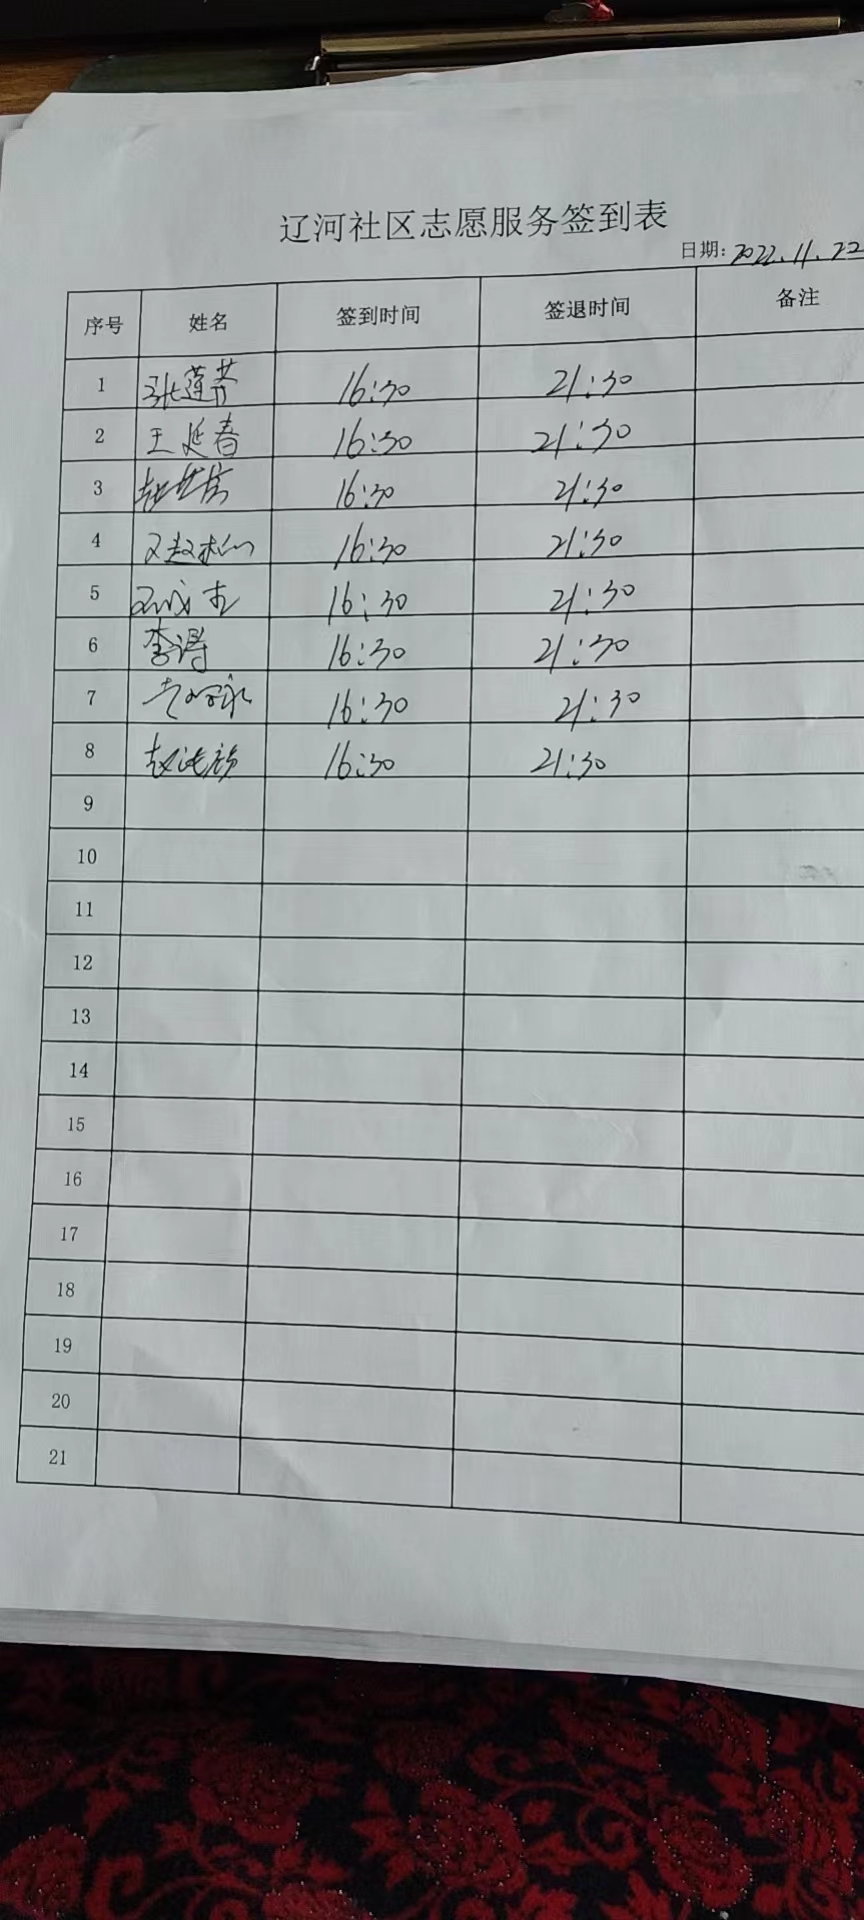 辽河社区志愿服务签到表
日期: 2022.11.22
序号 姓名 签到时间 签退时间 备注
1 张莲芳 16:30 21:30
2 王延春 16:30 21:30
3 16:30 21:30
4 16:30 21:30
5 16:30 21:30
6 李得 16:30 21:30
7 16:30 21:30
8 16:30 21:30
9
10
11
12
13
14
15
16
17
18
19
20
21